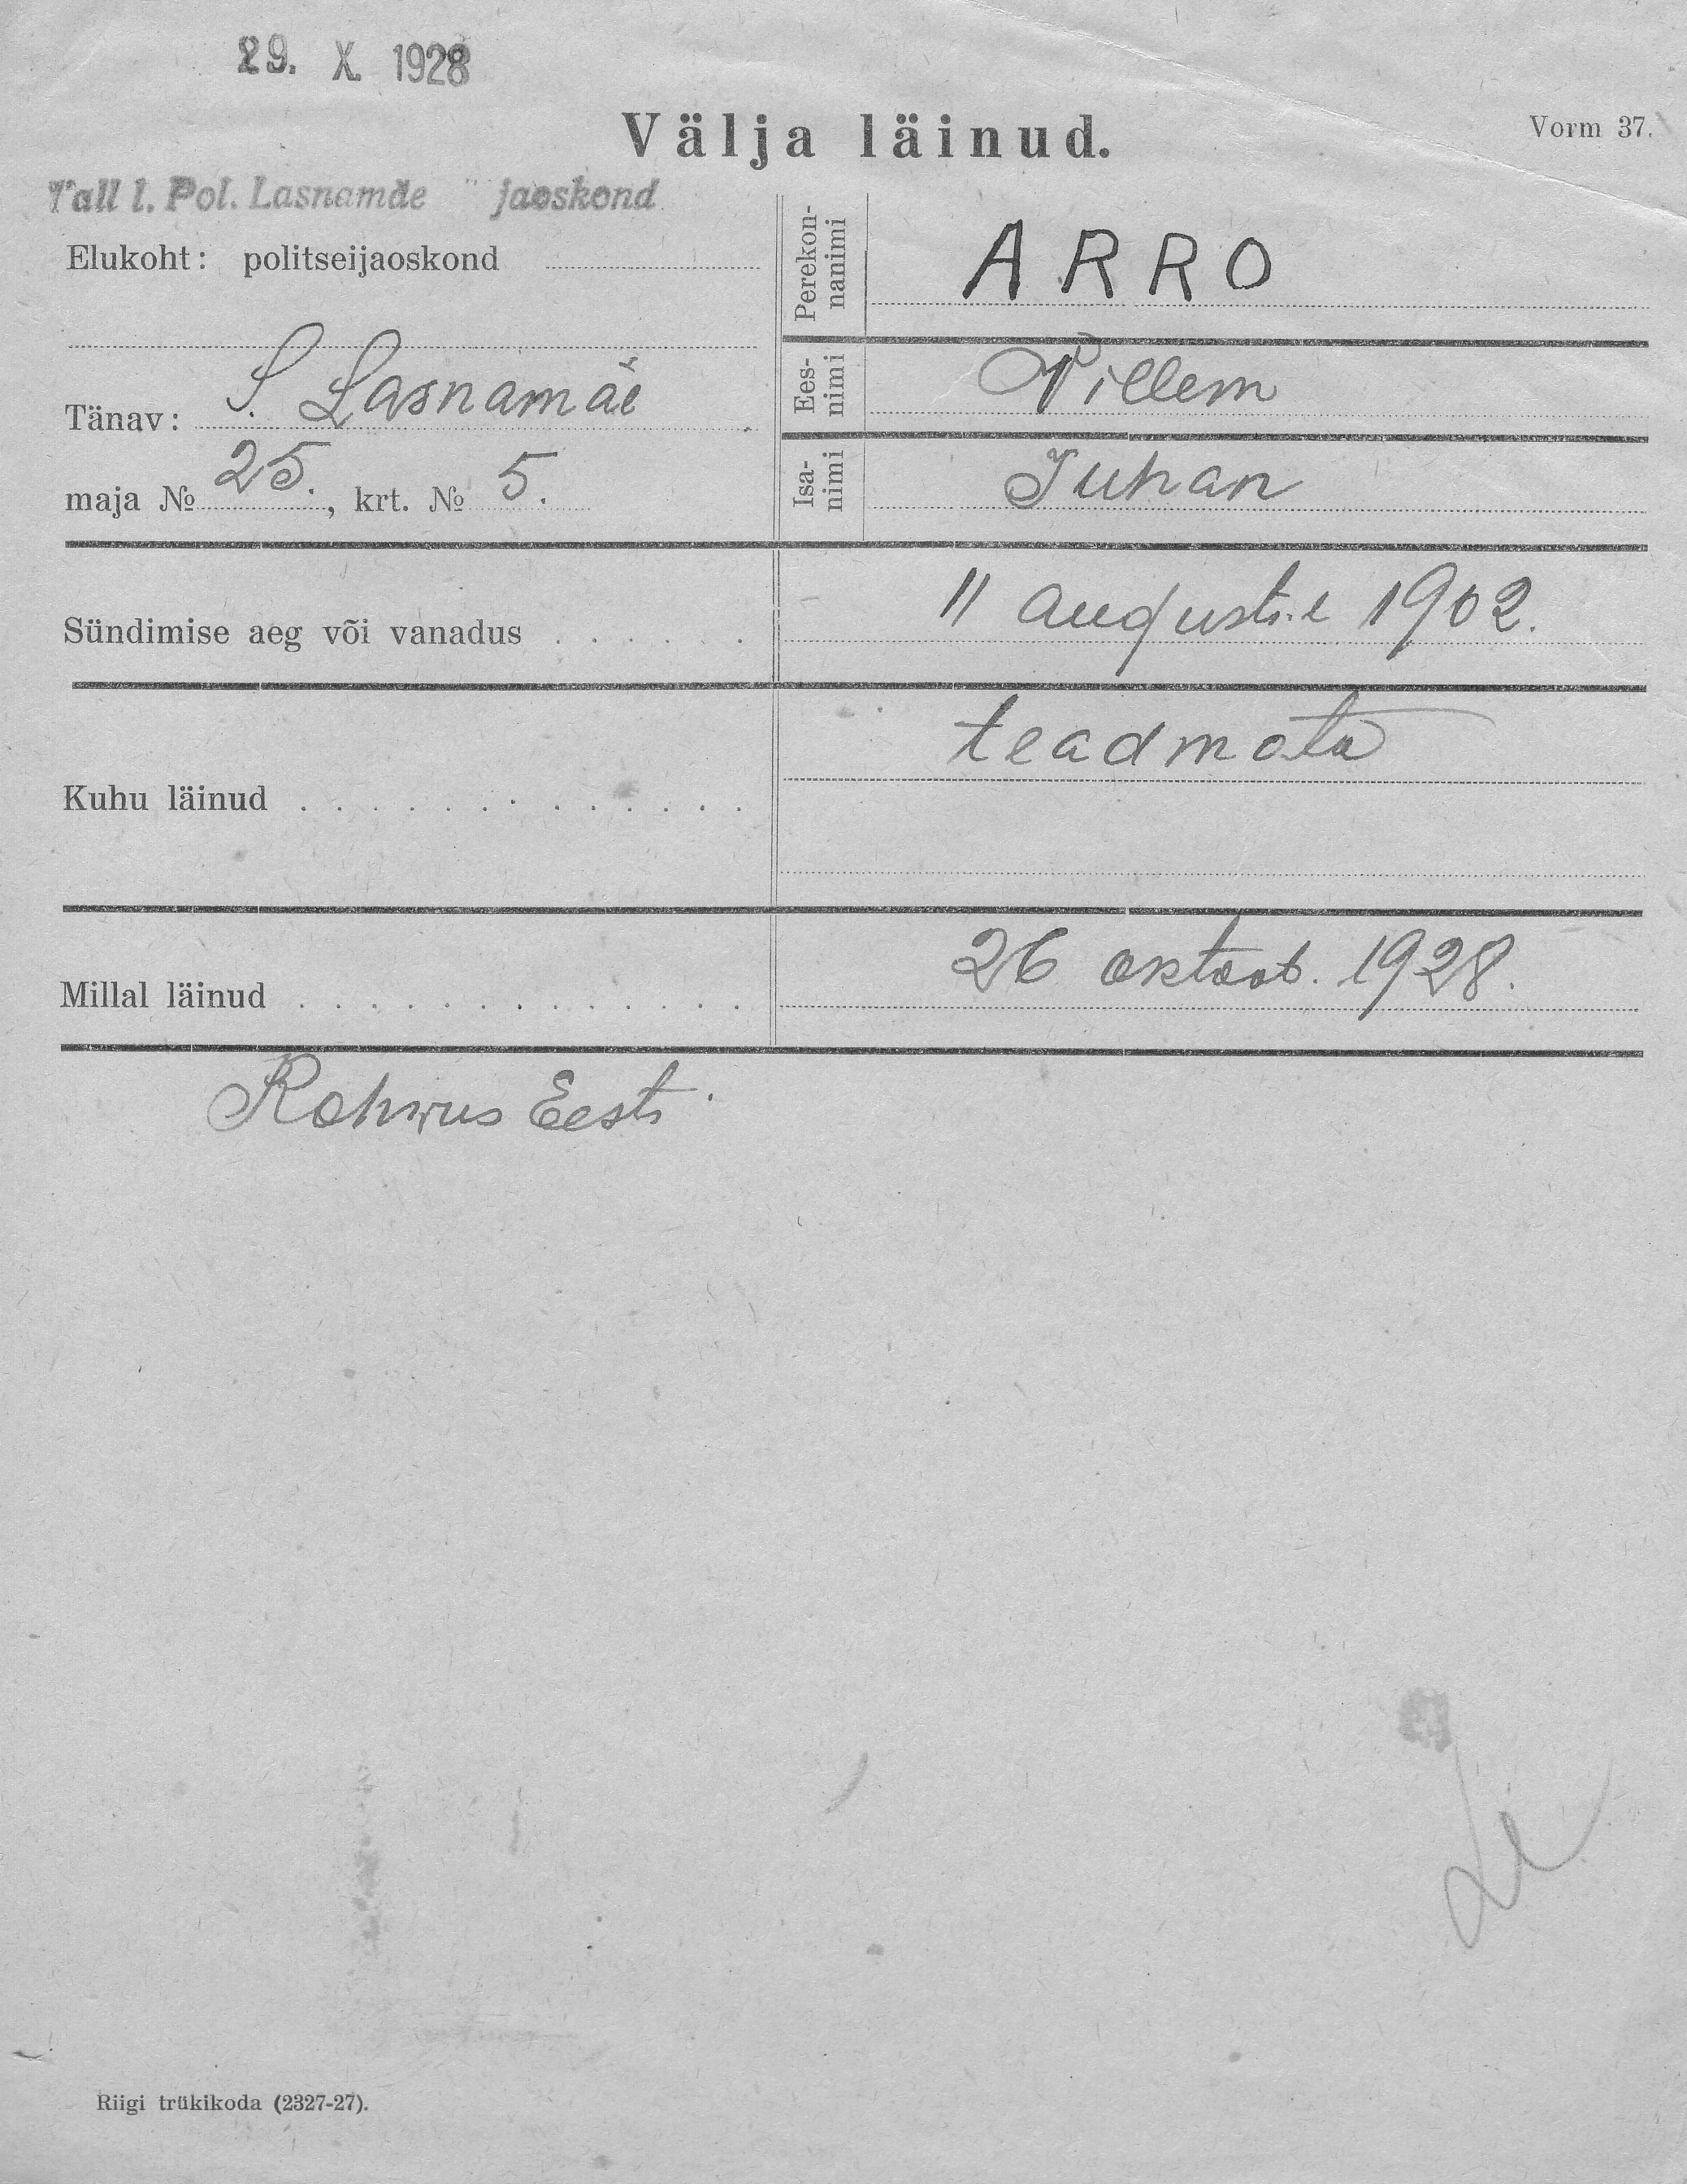 29. X. 1928
Välja läinud.
Vorm 37.
Tall l. Pol. Lasnamäe jaoskond
Elukoht: politseijaoskond
Tänav: S. Lasnamäe
maja № 25., krt. № 5.
Perekon-
nanimi
ARRO
Ees-
nimi
Villem
Isa-
nimi
Juhan
Sündimise aeg või vanadus . . . . . . 11 augustil 1902.
Kuhu läinud . . . . . . . . . . . . . teadmata
Millal läinud . . . . . . . . . . . . . 26 oktoob. 1928.
Rahwus Eesti
Riigi trükikoda (2327-27).